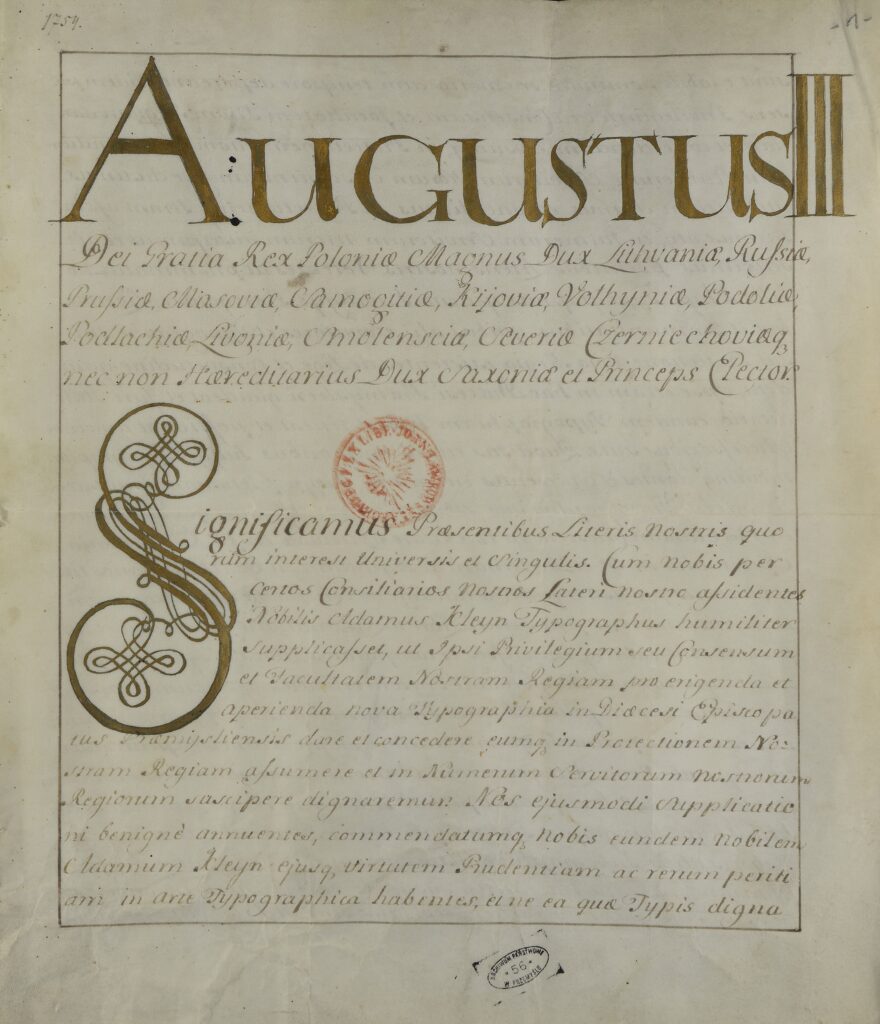 1754.
-1-
AUGUSTUS III
Dei Gratia Rex Poloniæ Magnus Dux Lithvaniæ, Russiæ,
Prussiæ, Masoviæ, Samogitiæ, Kijoviæ, Volhyniæ, Podoliæ,
Podlachiæ, Livoniæ, Smolensciæ, Severiæ Czerniechoviæq,
nec non Hæreditarius Dux Saxoniæ et Princeps Elector.
Significamus Præsentibus Literis Nostris quo
rum interest Universis et Singulis. Cum Nobis per
certos Consiliarios Nostros Lateri Nostro assidentes
Nobilis Adamus Kleyn Typographus humiliter
supplicasset, ut Ipsi Privilegium seu Consensum
et Facultatem Nostram Regiam pro erigenda et
aperienda nova Typographia in Diæcesi Episcopa
tus Præmisliensis dare et concedere eumq, in Protectionem No-
stram Regiam assumere et in Numerum Servitorum Nostrorum
Regiorum suscipere dignaremur. Nos ejusmodi supplicatio
ni benignè annuentes, commendatumq, Nobis eundem Nobilem
Adamum Kleyn ejusq, virtutem Prudentiam ac rerum periti
am in arte Typographica habentes, et ne ea quæ Typis digna
ARCHIWUM PAŃSTWOWE
56
W PRZEMYŚLU